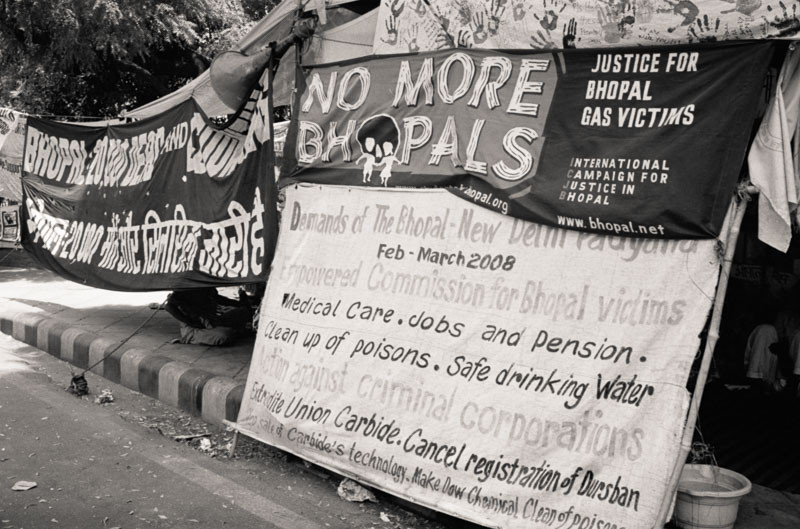 BHOPAL: 20,000 DEAD AND
भोपाल: 20,000 मौतें और सिलसिला जारी है
NO MORE
BHOPALS
JUSTICE FOR
BHOPAL
GAS VICTIMS
INTERNATIONAL
CAMPAIGN FOR
JUSTICE IN
BHOPAL
www.bhopal.net
Demands of The Bhopal-New Delhi Padyatra
Feb - March 2008
Empowered Commission for Bhopal victims
Medical Care. Jobs and Pension.
Clean up of poisons. Safe drinking Water
Action against criminal corporations
Extradite Union Carbide. Cancel registration of Dursban
sale of Carbide's technology. Make Dow Chemical Clean of poisons